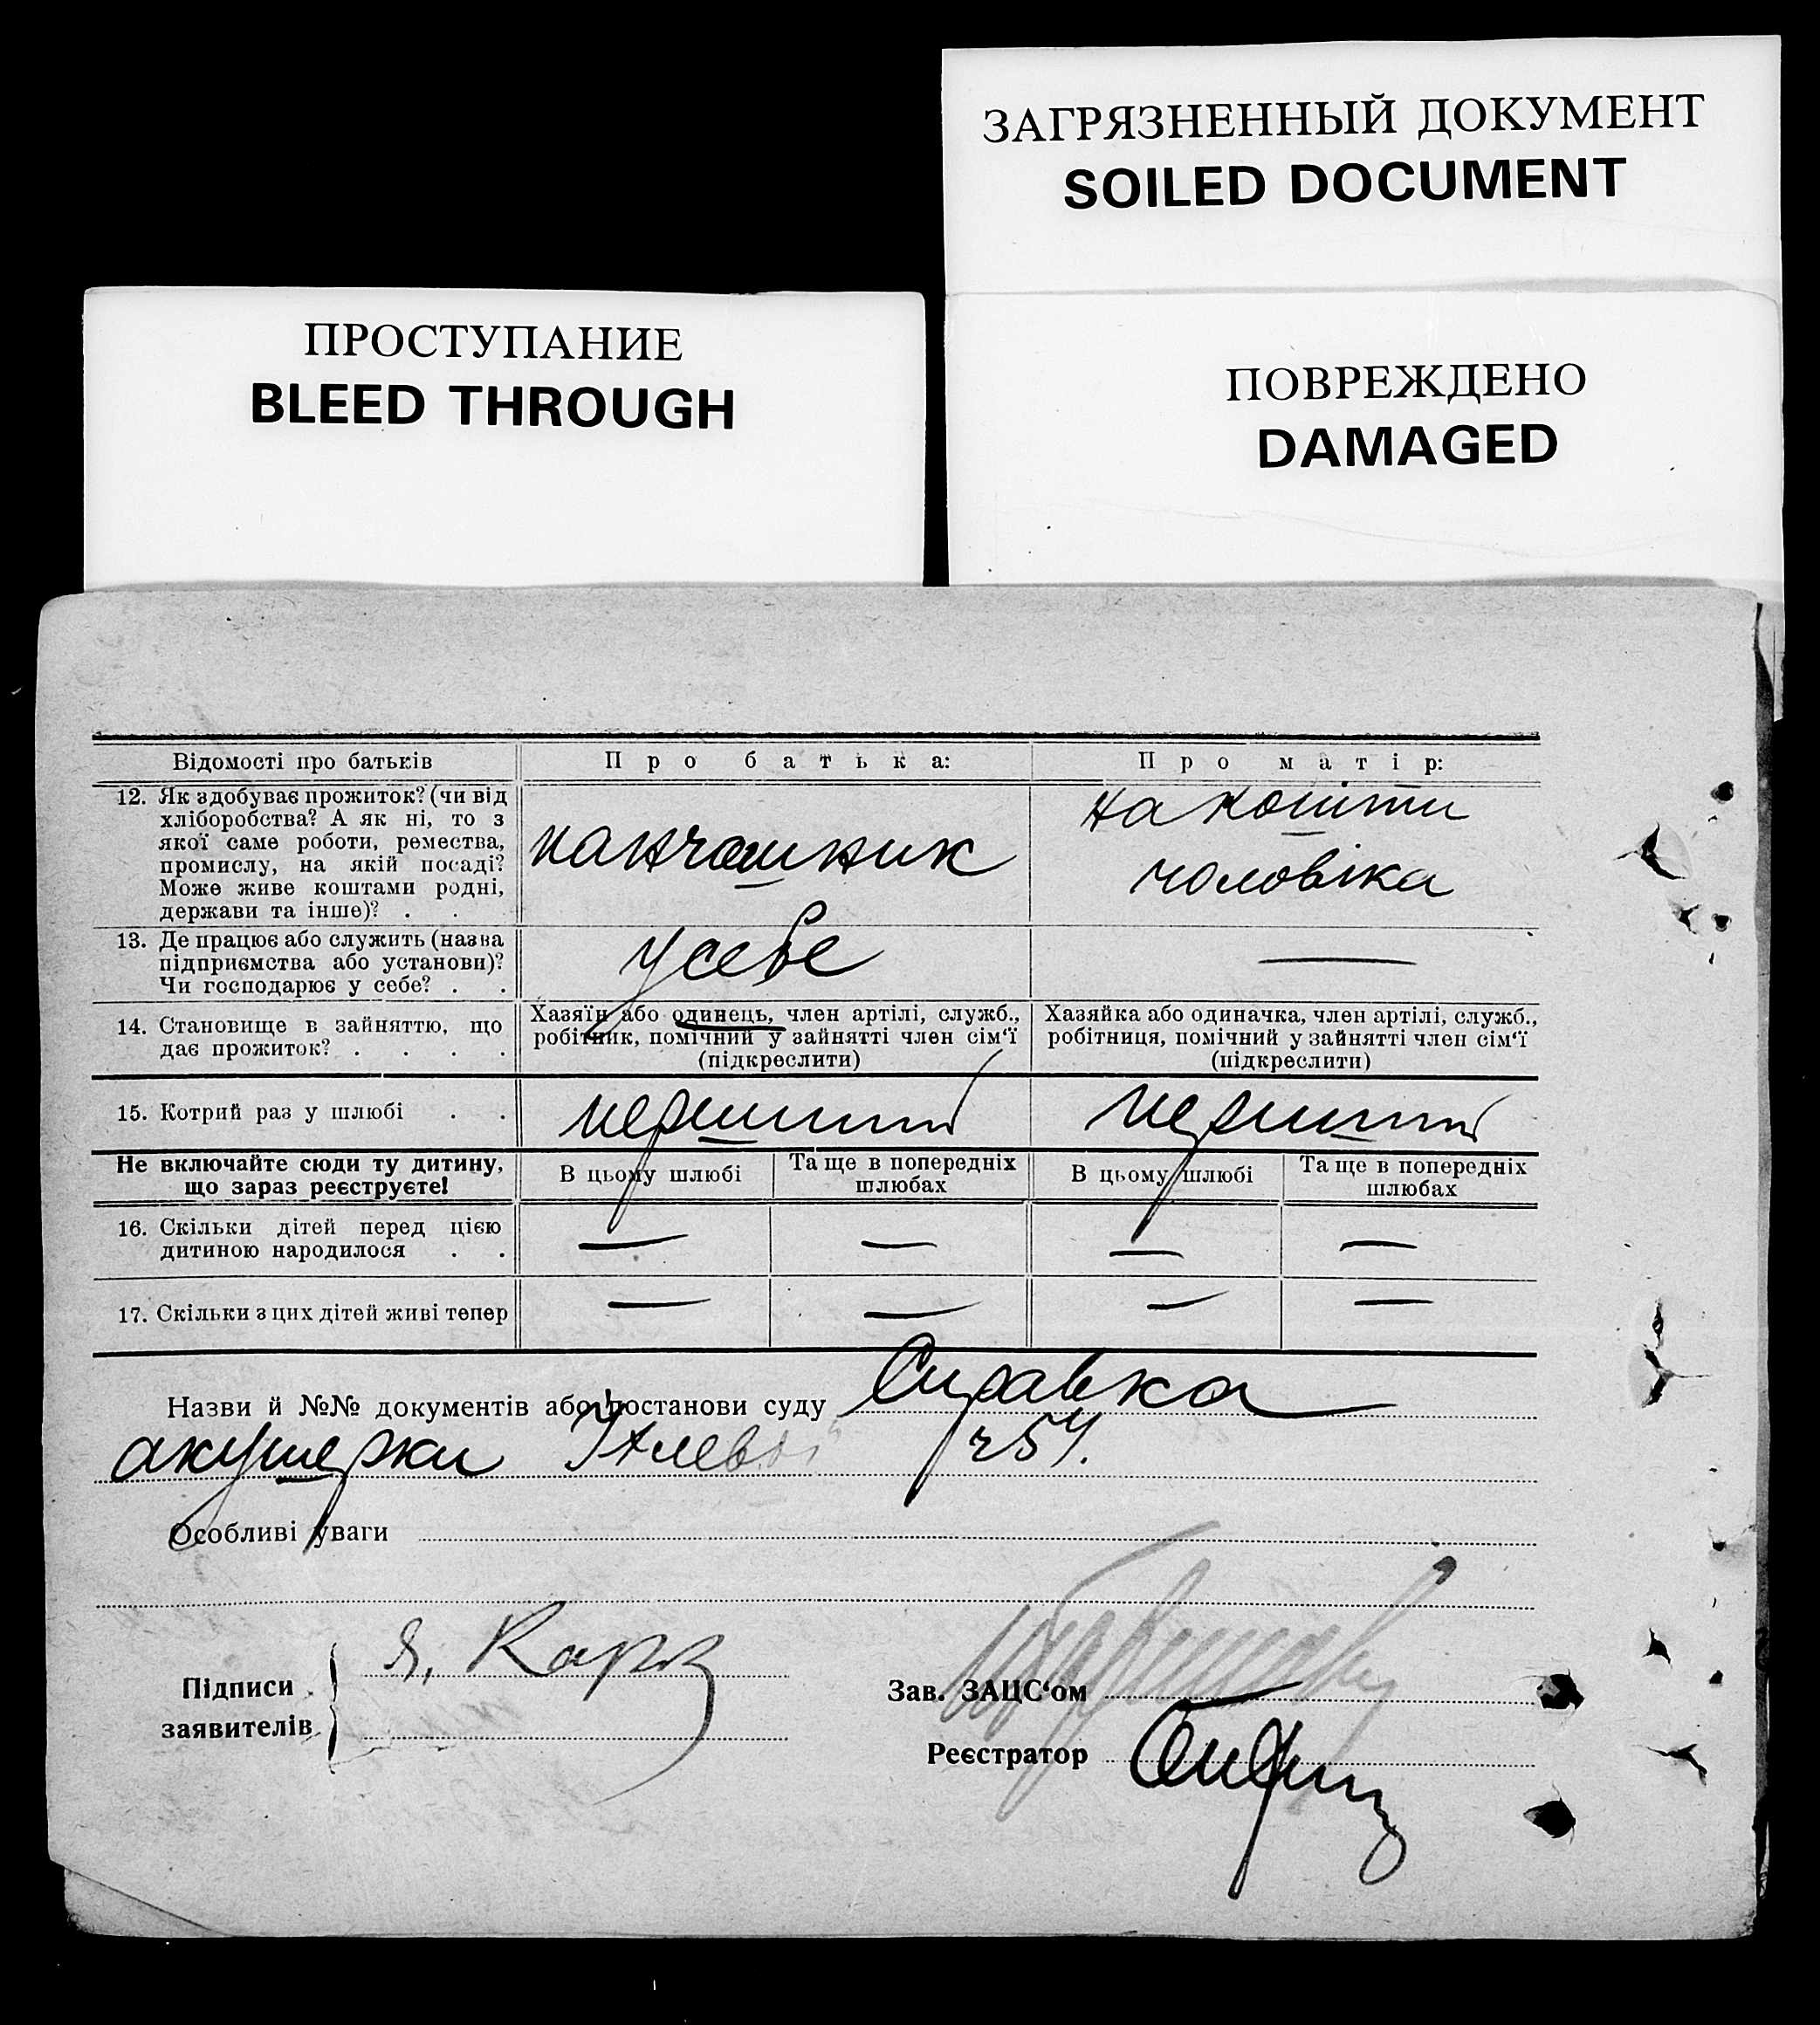 ЗАГРЯЗНЕННЫЙ ДОКУМЕНТ
SOILED DOCUMENT
ПРОСТУПАНИЕ
BLEED THROUGH
ПОВРЕЖДЕНО
DAMAGED
Відомості про батьків
Про батька:
Про матір:
12. Як здобуває прожиток? (чи від
хліборобства? А як ні, то з
якої саме роботи, ремества,
промислу, на якій посаді?
Може живе коштами родні,
держави та інше)? . .
панчошник
на кошти
чоловіка
13. Де працює або служить (назва
підприємства або установи)?
Чи господарює у себе? . .
у себе
—
14. Становище в зайняттю, що
дає прожиток? . . . .
Хазяїн або одинець, член артілі, служб.,
робітник, помічний у зайнятті член сім‘ї
(підкреслити)
Хазяйка або одиначка, член артілі, служб.,
робітниця, помічний у зайнятті член сім‘ї
(підкреслити)
15. Котрий раз у шлюбі . .
перший
перший
Не включайте сюди ту дитину,
що зараз реєструєте!
В цьому шлюбі
Та ще в попередніх
шлюбах
В цьому шлюбі
Та ще в попередніх
шлюбах
16. Скільки дітей перед цією
дитиною народилося . .
— — — —
17. Скільки з цих дітей живі тепер
— — — —
Назви й №№ документів або постанови суду Справка
акушерки
Особливі уваги
Підписи
заявителів
Я. Карп
Зав. ЗАЦС‘ом
Реєстратор